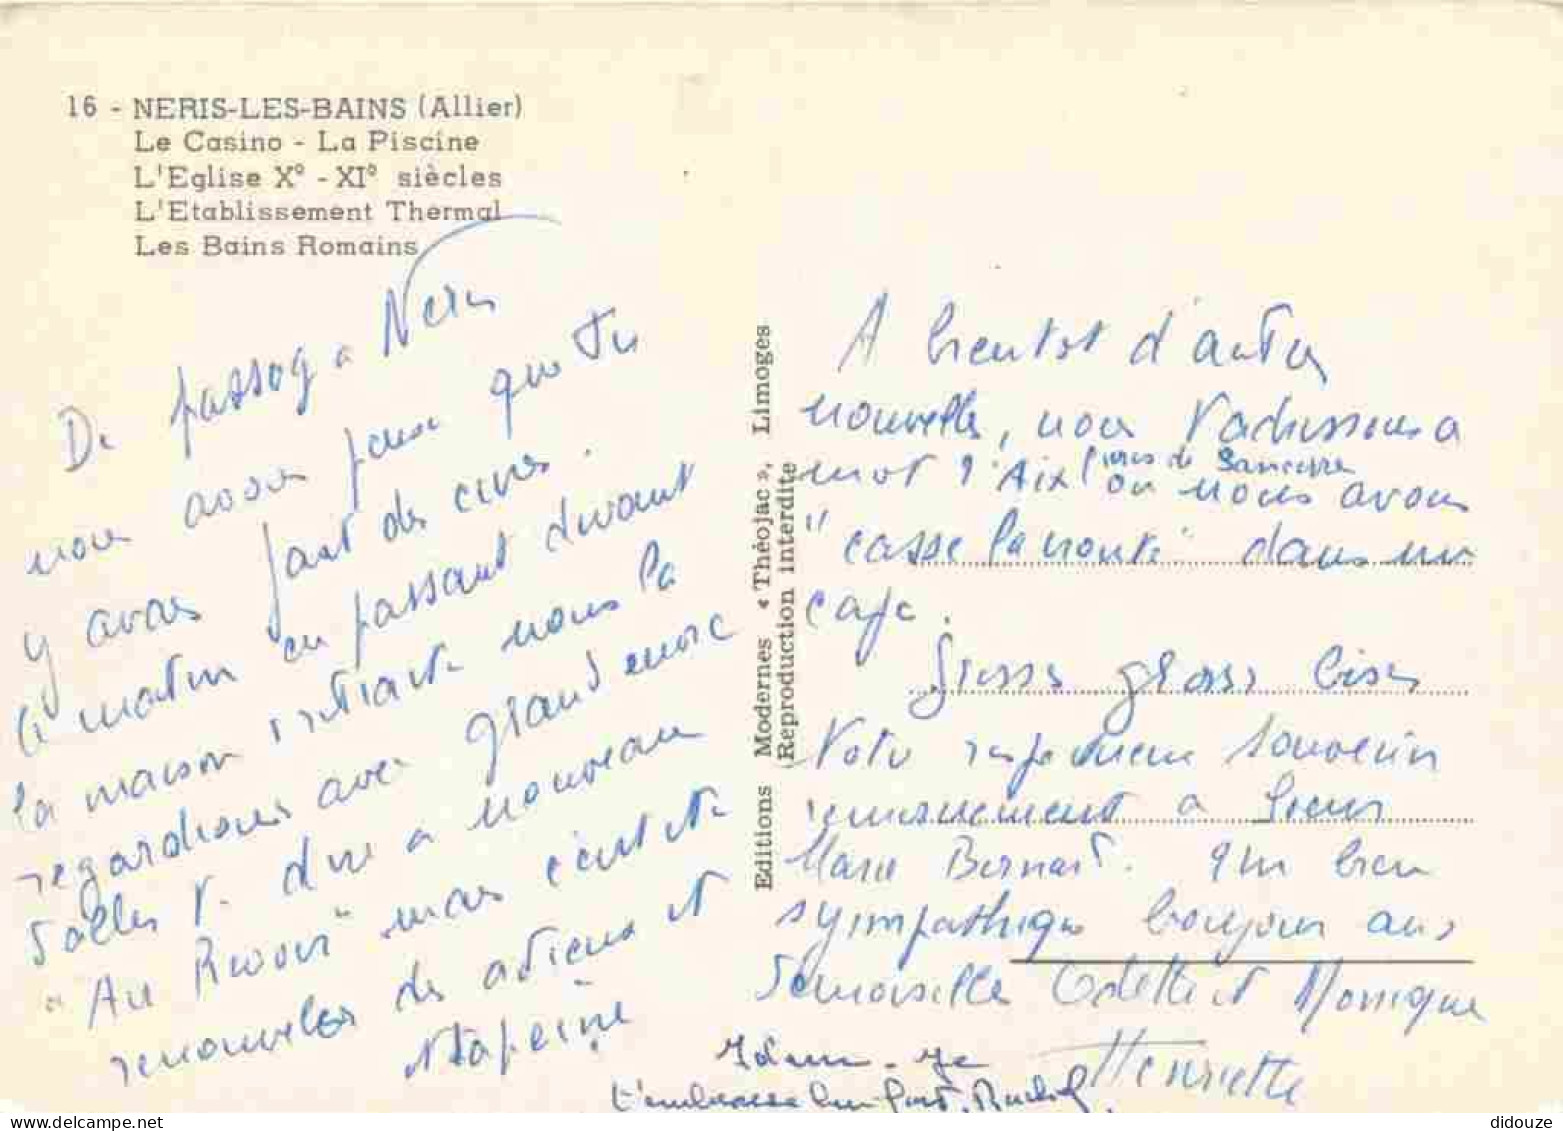 16 - NERIS-LES-BAINS (Allier)
Le Casino - La Piscine
L'Eglise X° - XI° siècles
L'Etablissement Thermal
Les Bains Romains
De passag a Neris
nous avons pensé que tu
y avais fait des cures.
le matin en passant devant
la maison retraite nous la
regardions avec grand envie
dire a nouveau
"Au Revoir" mais c'eut ete
renouveler des adieux et
ta peine
Editions Modernes « Théojac », Limoges
Reproduction interdite
A bientot d'autres
nouvelles, nous t'adressons a
mot d'Aix ou nous avons
"casse la croute" dans un
cafe.
Grosses grosses bises
Votre respectueux souvenir
a Soeur
Marie Bernard. Un bien
sympathique bonjour aux
demoiselles Odette et Monique
Henriette
Idem - Je
t'embrasse bien fort.
didouze